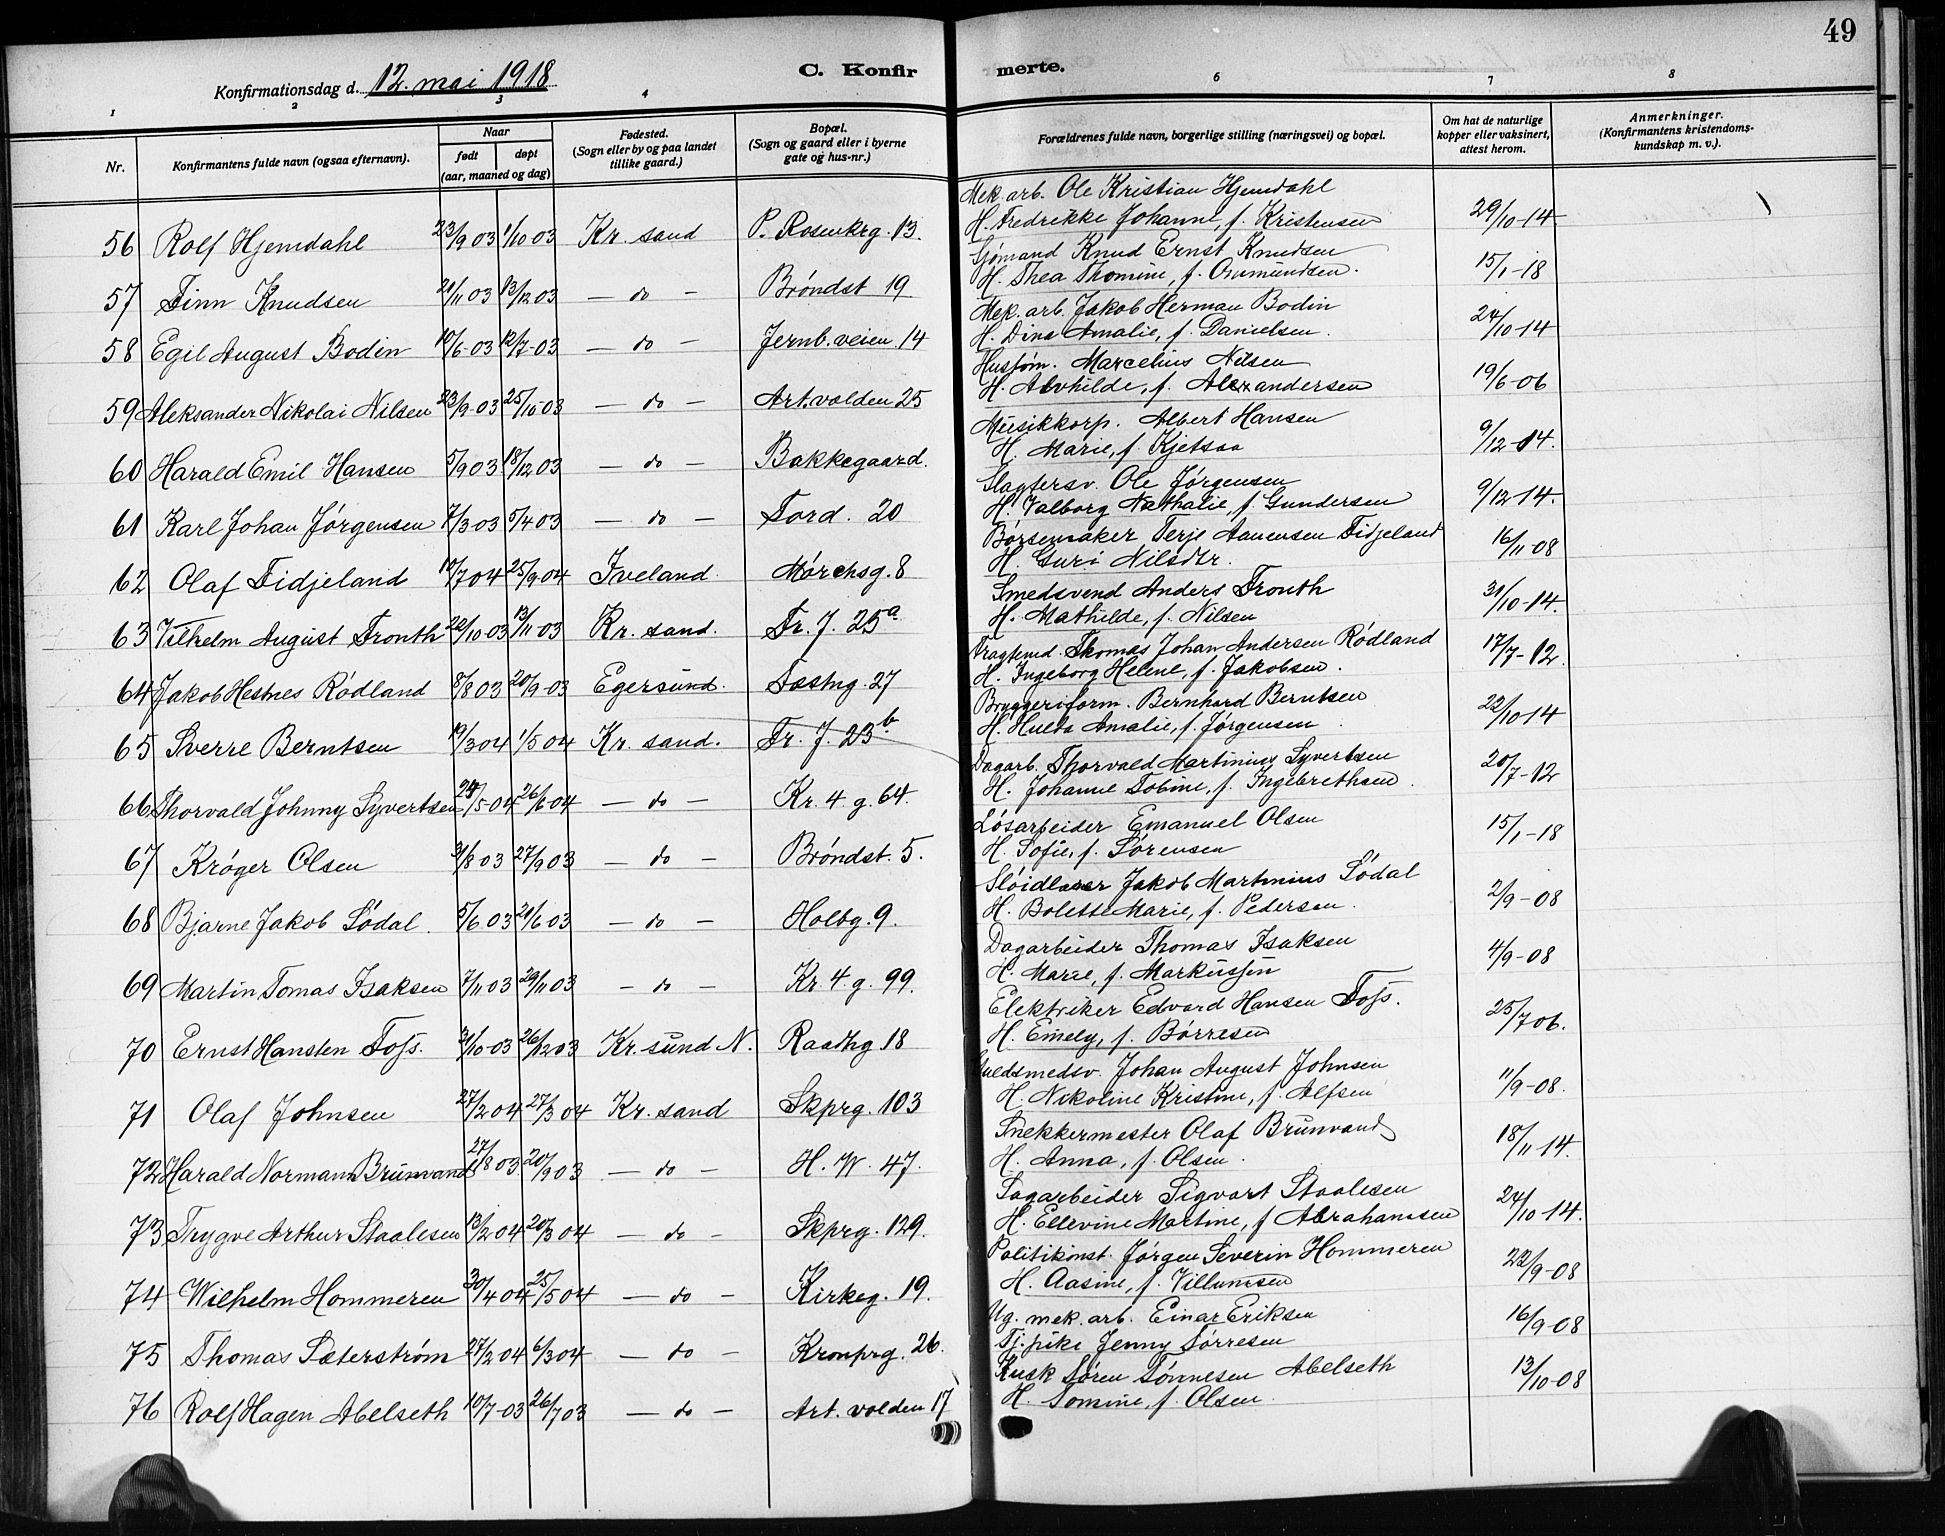 49
Konfirmationsdag d. 12. mai 1918
C. Konfirmerte.
1 2 3 4 6 7 8
Nr. Konfirmantens fulde navn (ogsaa efternavn). Naar født døpt (aar, maaned og dag) Fødested. (Sogn eller by og paa landet tillike gaard.) Bopæl. (Sogn og gaard eller i byerne gate og hus-nr.) Forældrenes fulde navn, borgerlige stilling (næringsvei) og bopæl. Om hat de naturlige kopper eller vaksinert, attest herom. Anmerkninger. (Konfirmantens kristendomskundskap m. v.).
Mek. arb. Ole Kristian Hjemdahl
56 Rolf Hjemdahl 23/9 03 1/10 03 Kr. sand P. Rosenkrg. 13. H. Fredrikke Johanne, f. Kristensen 29/10-14
Sjømand Knud Ernst Knudsen
57 Finn Knudsen 21/11 03 13/12 03 — do — Brøndst 19 H. Thea Thomine, f. Ommundsen. 15/1-18
Mek. arb. Jakob Herman Bodin
58 Egil August Bodin 10/6-03 12/7-03 — do — Jernb. veien 14 H. Dina Amalie, f. Danielsen. 24/10-14
Husjøm. Marcelius Nilsen
59 Aleksander Nikolai Nilsen 23/9-03 25/10-03 — do — Art. volden 25 H. Alvhilde, f. Alexandersen 19/6-06
Musikkorp. Albert Hansen
60 Harald Emil Hansen 5/9 03 18/12 03 — do — Bakkegaard. H. Marie, f. Kjetsaa 9/12-14.
Slagtersv. Ole Jørgensen
61 Karl Johan Jørgensen 7/3 03 5/4 03 — do — Tord. 20 H. Valborg Nathalie, f. Gundersen 9/12-14.
Børsemaker Terje Aanensen Fidjeland
62 Olaf Fidjeland 19/7 04 25/9-04 Iveland. Mørchsg. 8 H. Guri Nilsdtr. 16/11-08
Smedsvend Anders Fronth
63 Vilhelm August Fronth 22/10-03 13/11-03 Kr. sand. Fr. J. 25a H. Mathilde, f. Nilsen 31/10-14.
Fragtemd. Thomas Johan Andersen Rødland
64 Jakob Hestnes Rødland 8/8 03 20/9-03 Egersund. Fæstng. 27 H. Ingeborg Helene, f. Jakobsen. 17/7-12.
Bryggeriform. Bernhard Berntsen
65 Sverre Berntsen 19/3 04 1/5 04 Kr. sand. Fr. J. 23b H. Hulda Amalie, f. Jørgensen 22/10-14
Dagarb. Thorvald Martinius Syvertsen
66 Thorvald Johnny Syvertsen 25/5-04 26/6-04 — do — Kr. 4 g. 64. H. Johanne Tobine, f. Ingebrethsen. 20/7-12
Løsarbeider Emanuel Olsen
67 Krøger Olsen 31/8 03 27/9 03 — do — Brøndst. 5. H. Sofie, f. Sørensen 15/1-18
Sløidlærer Jakob Martinius Sødal
68 Bjarne Jakob Sødal. 5/6 03 21/6 03 — do — Holbg. 9. H. Bolette Marie, f. Pedersen. 2/9-08
Dagarbeider Thomas Isaksen
69 Martin Tomas Isaksen 7/11 03 29/11 03 — do — Kr 4 g. 99. H. Marie, f. Markussen 4/9-08
Elektriker Edvard Hansen Foss.
70 Ernst Hansten Foss. 31/10-03 26/12 03 Kr. sund N. Raadhg 18 H. Emely, f. Børresen 25/7 06.
Guldsmedsv. Johan August Johnsen
71 Olaf Johnsen 27/2 04 27/3 04 Kr. sand Skprg. 103 H. Nikoline Kristine, f. Alfsen 11/9-08.
Snekkermester Olaf Brunvand
72 Harald Normann Brunvand 27/8 03 20/9 03 — do — H. W. 47. H. Anna, f. Olsen. 18/11-14.
Sagarbeider Sigvart Staalesen
73 Trygve Arthur Staalesen 13/2 04 20/3 04 — do — Skprg. 129. H. Ellevine Martine, f Abrahamsen 24/10-14.
Politikonst. Jørgen Severin Hommeren
74 Wilhelm Hommeren 30/4 04 25/5 04 — do — Kirkeg. 19. H. Aasine, f. Villumsen 22/9-08
Ug. mek. arb. Einar Eriksen
75 Thomas Sæterstrøm 27/2 04 6/3 04 — do — Kronprg. 26. Tj. pike Jenny Tørresen 16/9-08
Kusk Søren Tønnesen Abelseth
76 Rolf Hagen Abelseth 10/7-03 26/7 03 — do — Art. volden 17 H. Tomine, f. Olsen. 13/10-08